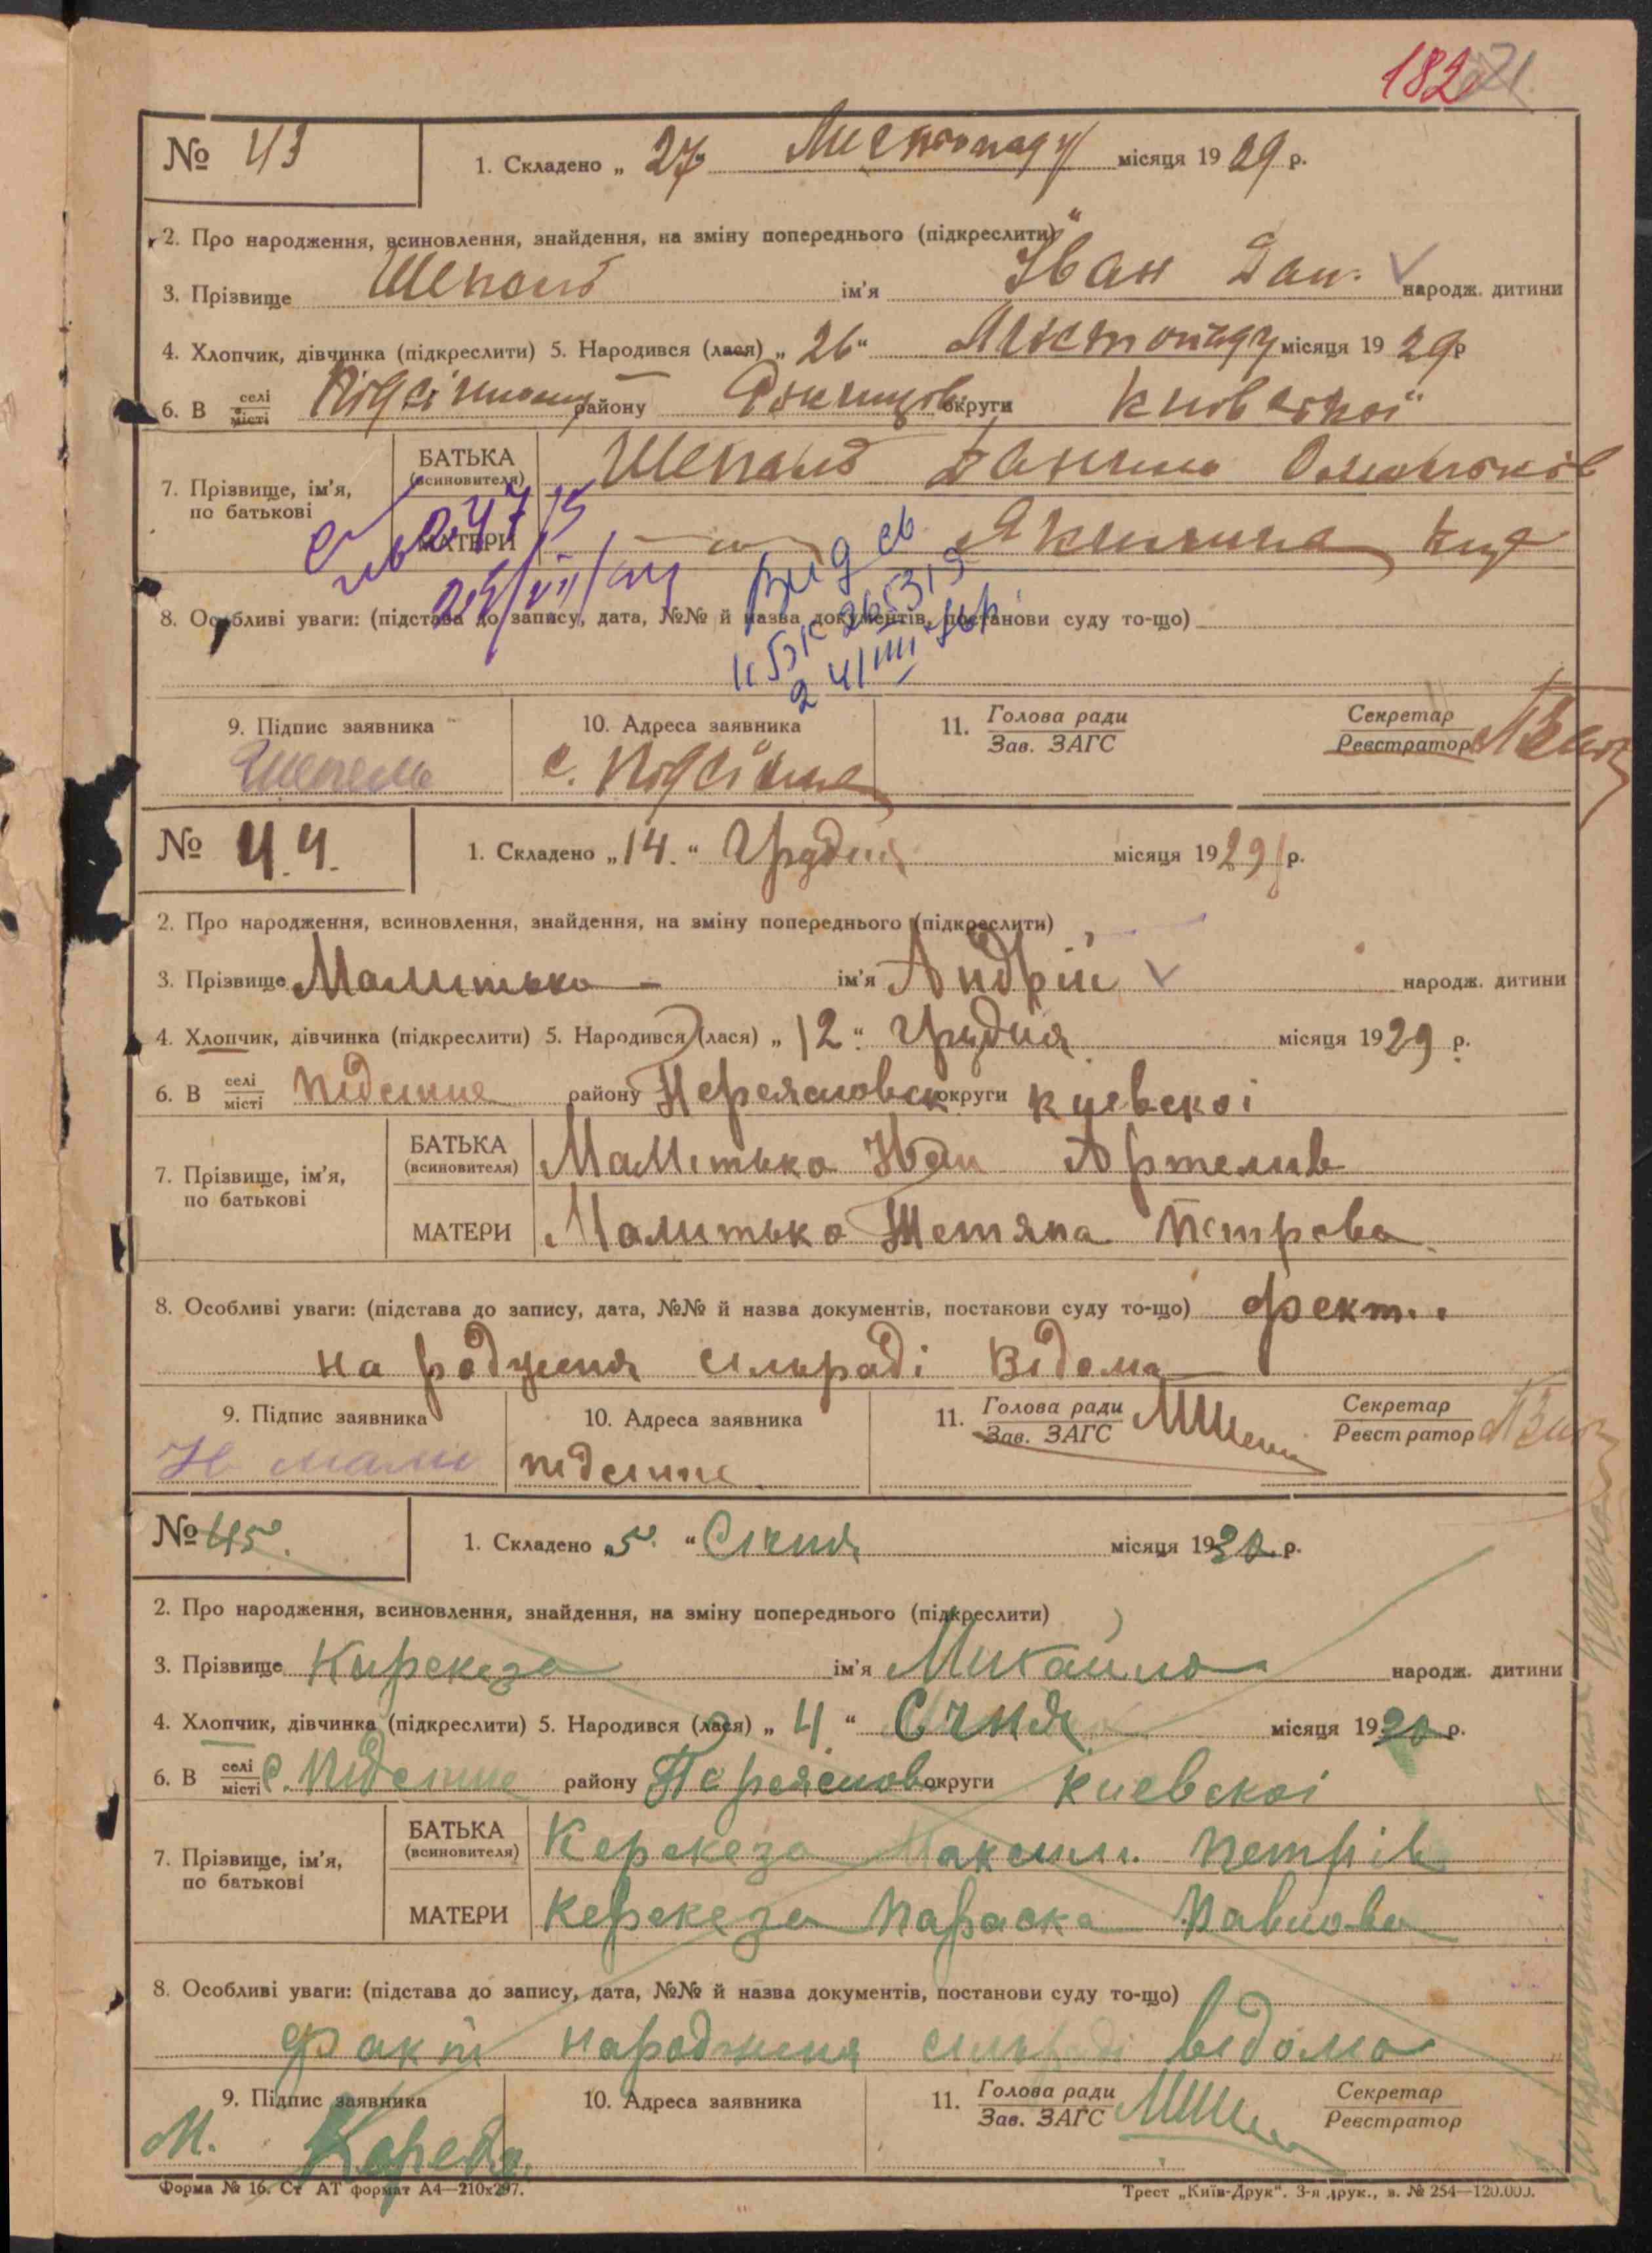 182
№ 43
1. Складено „ 27 Листопаду місяця 1929 р.
2. Про народження, всиновлення, знайдення, на зміну попереднього (підкреслити)
3. Прізвище Шепель ім'я Іван Дан. народж. дитини
4. Хлопчик, дівчинка (підкреслити) 5. Народився (лася) „ 26 “ Листопаду місяця 1929 р
6. В селі/місті району округи Київської
7. Прізвище, ім'я, по батькові
БАТЬКА (всиновителя) Шепель Данило
МАТЕРИ —„— Якилина
8. Особливі уваги: (підстава до запису, дата, №№ й назва документів, постанови суду то-що)
9. Підпис заявника
10. Адреса заявника
11. Голова ради / Зав. ЗАГС
Секретар / Реєстратор
Шепель
с. Підсінне
№ 44.
1. Складено „ 14. “ Грудня місяця 1929 р.
2. Про народження, всиновлення, знайдення, на зміну попереднього (підкреслити)
3. Прізвище Малитько ім'я Андрій народж. дитини
4. Хлопчик, дівчинка (підкреслити) 5. Народився (лася) „ 12 “ Грудня місяця 1929 р.
6. В селі/місті Підсинне району Переясловск округи Куевскоі
7. Прізвище, ім'я, по батькові
БАТЬКА (всиновителя) Малитько Іван Артемив
МАТЕРИ Малитько Тетяна Петрова
8. Особливі уваги: (підстава до запису, дата, №№ й назва документів, постанови суду то-що) факт
на родженя сільраді відома
9. Підпис заявника
10. Адреса заявника
11. Голова ради / Зав. ЗАГС
Секретар / Реєстратор
підсинне
№ 45.
1. Складено „ 5. “ Січня місяця 1930 р.
2. Про народження, всиновлення, знайдення, на зміну попереднього (підкреслити)
3. Прізвище Кирекеза ім'я Михайло народж. дитини
4. Хлопчик, дівчинка (підкреслити) 5. Народився (лася) „ 4 “ Січня місяця 1930 р.
6. В селі/місті с. Підсинне району Переяслов округи Киевскоі
7. Прізвище, ім'я, по батькові
БАТЬКА (всиновителя) Керекеза Максим Петрів
МАТЕРИ Керекеза Параска Павлова
8. Особливі уваги: (підстава до запису, дата, №№ й назва документів, постанови суду то-що)
факт народженя сільраді відома
9. Підпис заявника
10. Адреса заявника
11. Голова ради / Зав. ЗАГС
Секретар / Реєстратор
М.
Форма № 16. Ст АТ формат А4—210х297.
Трест „Київ-Друк“. 3-я друк., в. № 254—120.000.